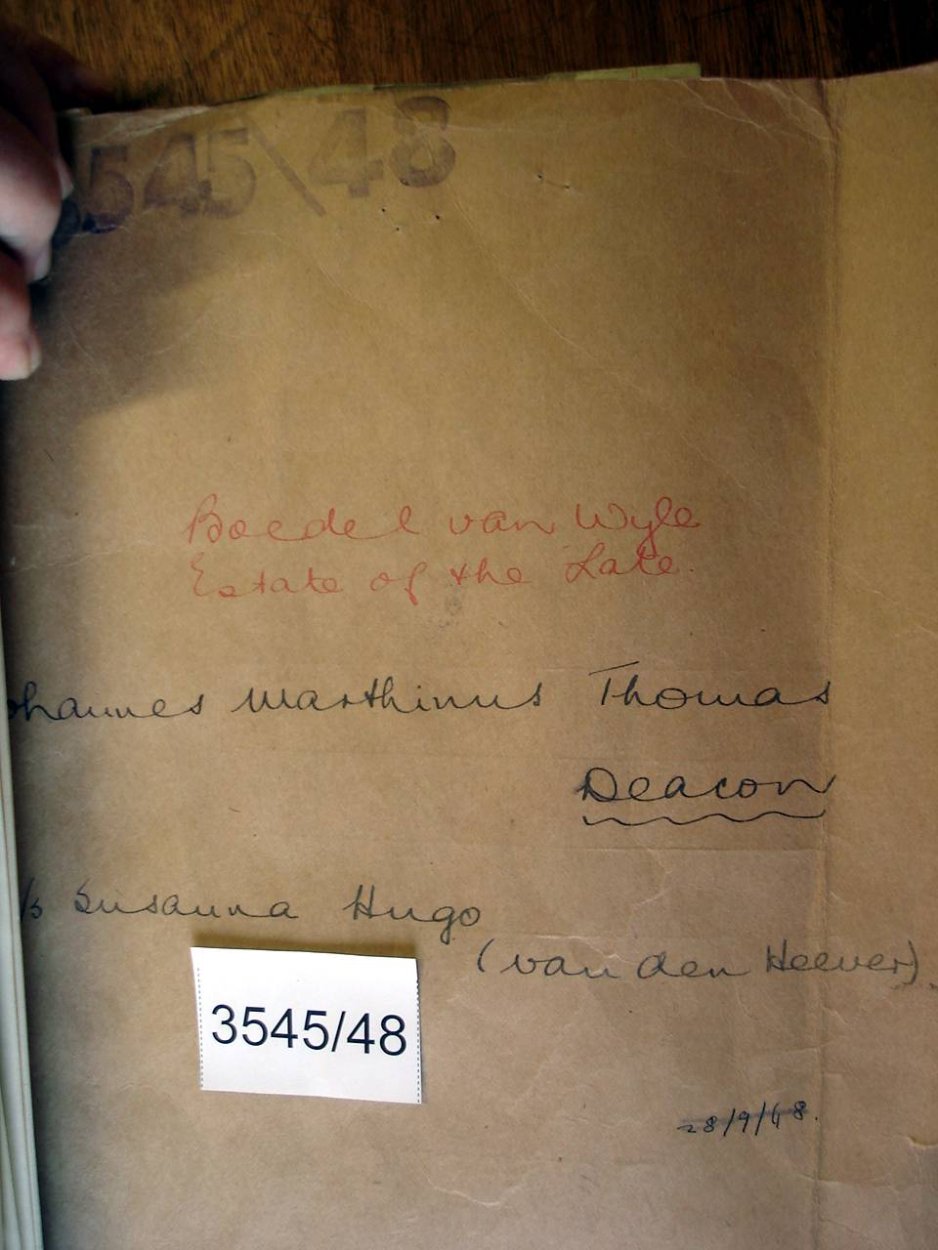 3545/48
Boedel van Wyle
Estate of the Late.
ohannes Marthinus Thomas
Deacon
/s Susanna Hugo
(van den Heever).
3545/48
28/9/48.